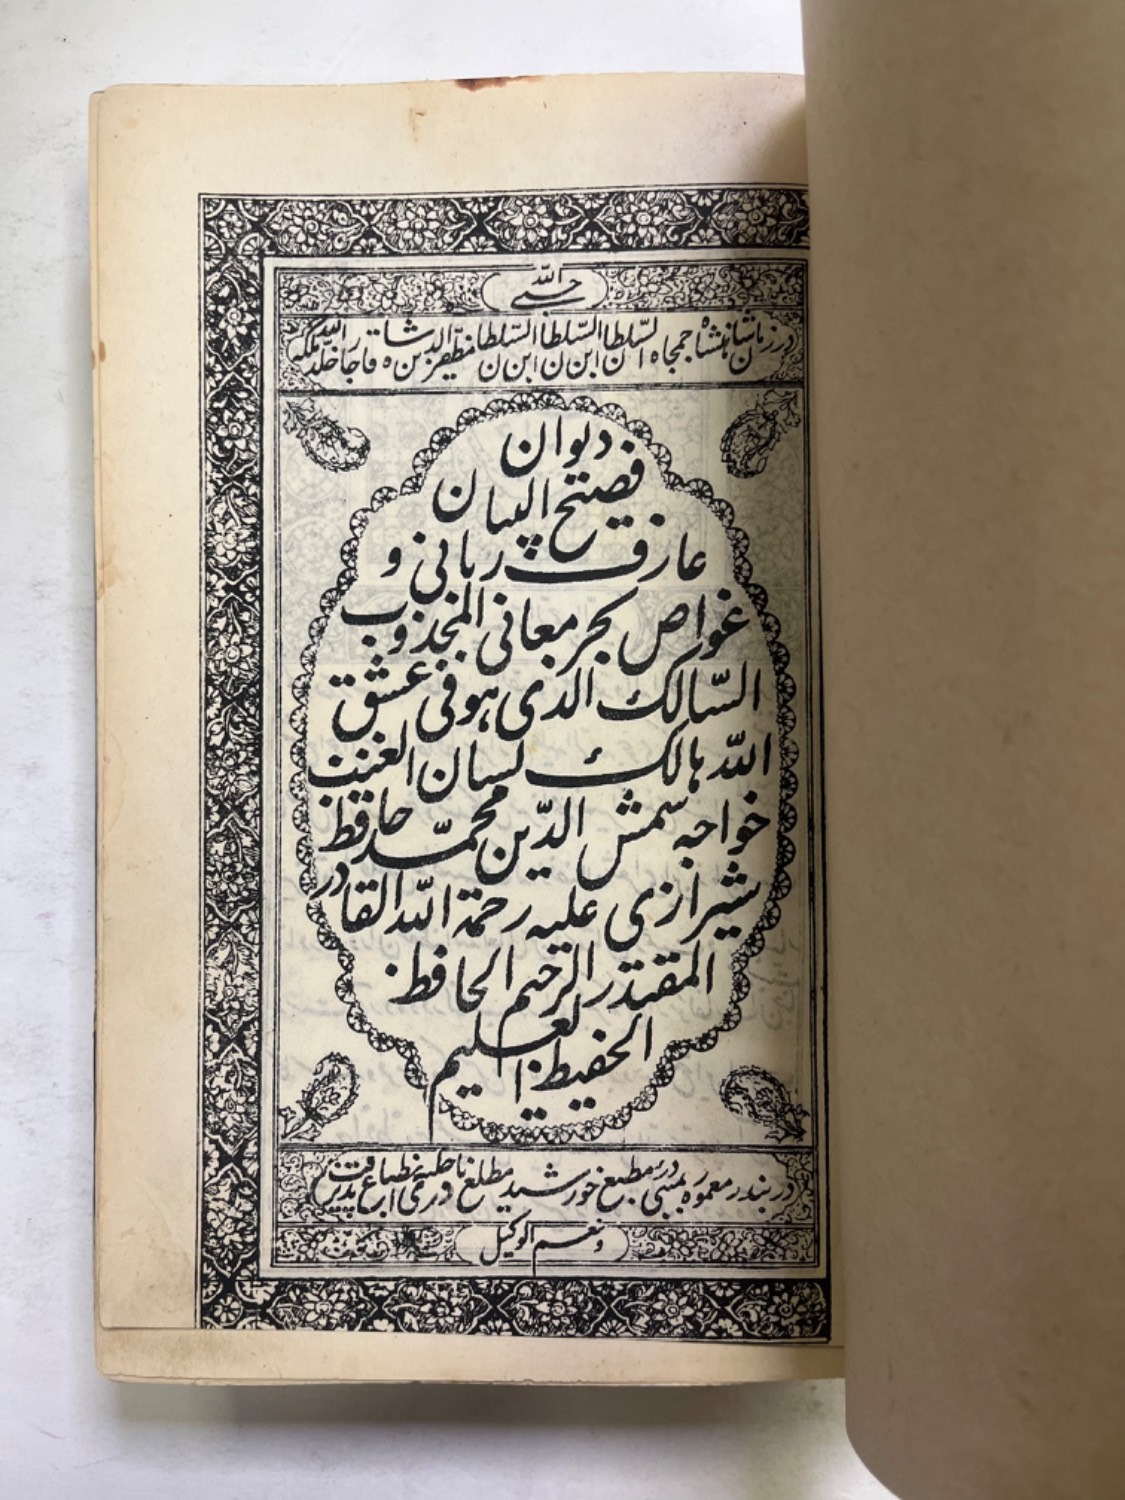 حسبی الله
در زمان شاهنشاه جمجاه السلطان ابن السلطان ابن السلطان مظفرالدین شاه قاجار خلد الله ملکه
دیوان
فصیح البیان
عارف ربانی و
غواص بحر معانی المجذوب
السّالک الذی هو فی عشق
اللّه هالک لسان الغیب
خواجه شمش الدّین محمّد حافظ
شیرازی علیه رحمة اللّه القادر
المقتدر الرحیم الحافظ
الحفیظ العلیم
در بندر معموره بمبئی در مطبع خورشید مطلع ناصری انطباع پذیرفت
ونعم الوکیل